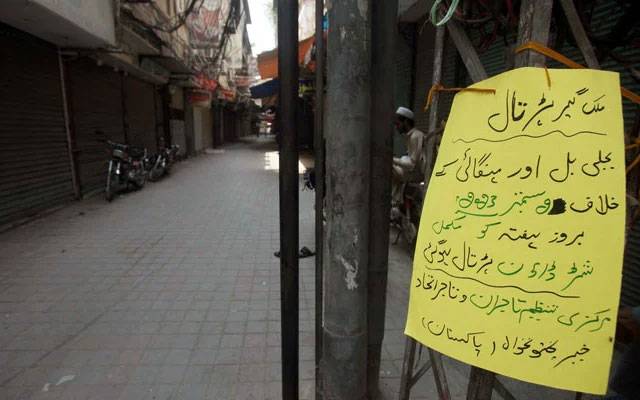 ملک گیر ہڑتال
بجلی بل اور مہنگائی کے
خلاف 2 ستمبر 2023
بروز ہفتہ کو مکمل
شٹر ڈاؤن ہڑتال ہوگی
مرکزی تنظیم تاجران و تاجر اتحاد
خیبر پختونخوا (پاکستان)